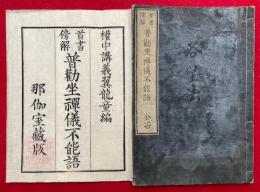 權中講義翼龍章編
首書
傍解
普勸坐禪儀不能語
那伽室藏版
首書
傍解
普勸坐禪儀不能語
全